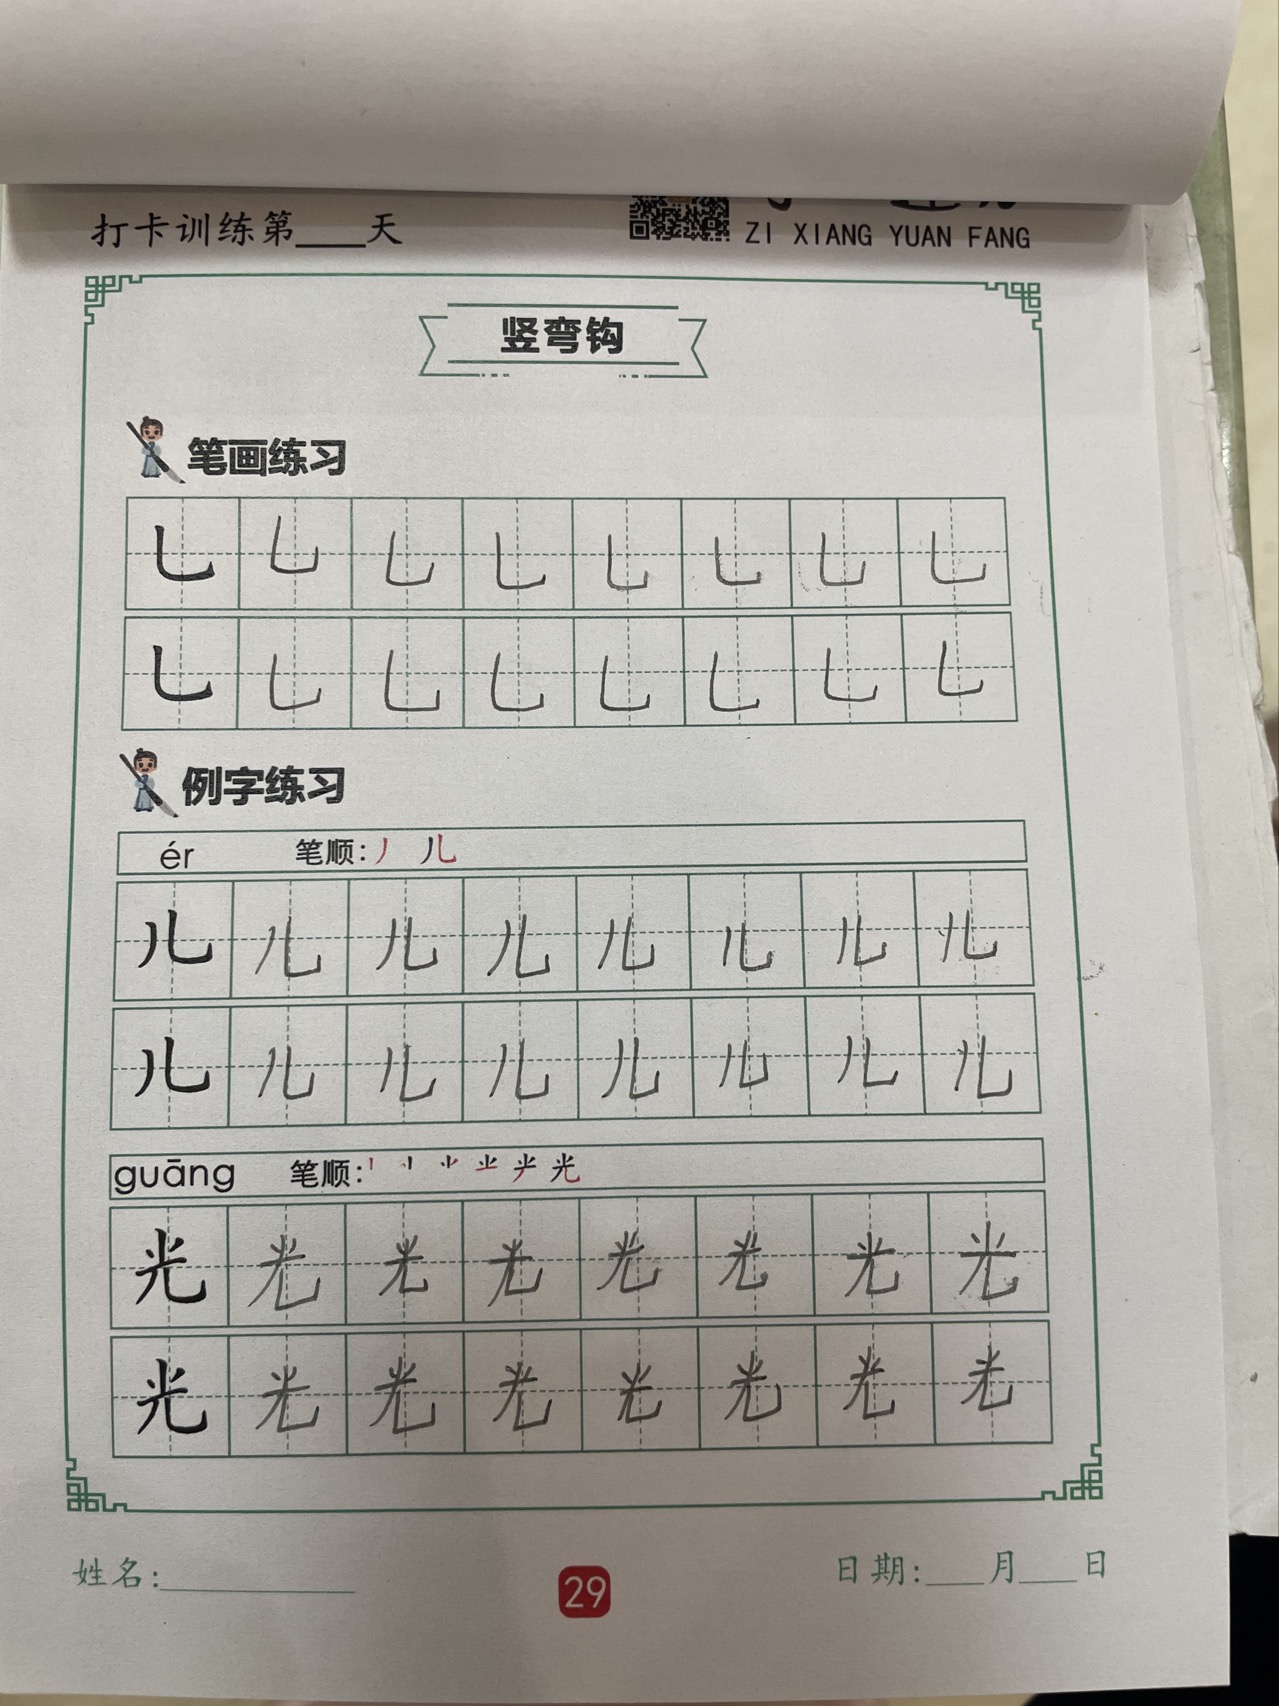 打卡训练第____天
ZI XIANG YUAN FANG
竖弯钩
笔画练习
乚 乚 乚 乚 乚 乚 乚 乚
乚 乚 乚 乚 乚 乚 乚 乚
例字练习
ér 笔顺: 丿 儿
儿 儿 儿 儿 儿 儿 儿 儿
儿 儿 儿 儿 儿 儿 儿 儿
guāng 笔顺: 光
光 光 光 光 光 光 光 光
光 光 光 光 光 光 光 光
姓名:__________
29
日期:___月___日